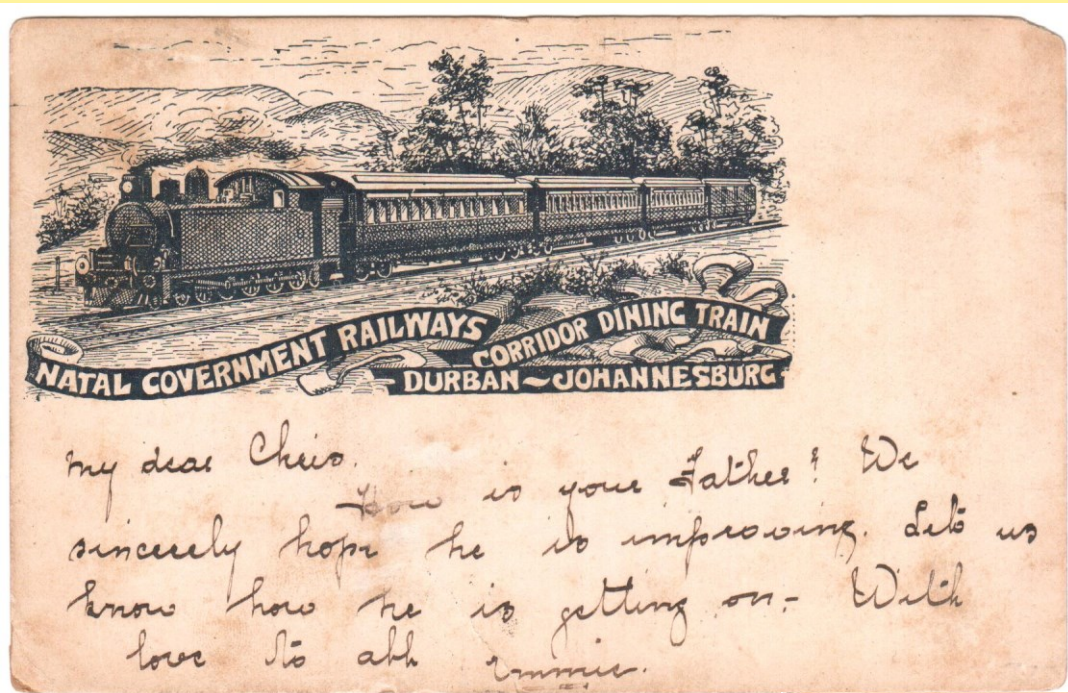 NATAL GOVERNMENT RAILWAYS
CORRIDOR DINING TRAIN
DURBAN ~ JOHANNESBURG
My dear Chris.
How is your Father? We
sincerely hope he is improving. Let us
know how he is getting on - With
love to all Emmie.